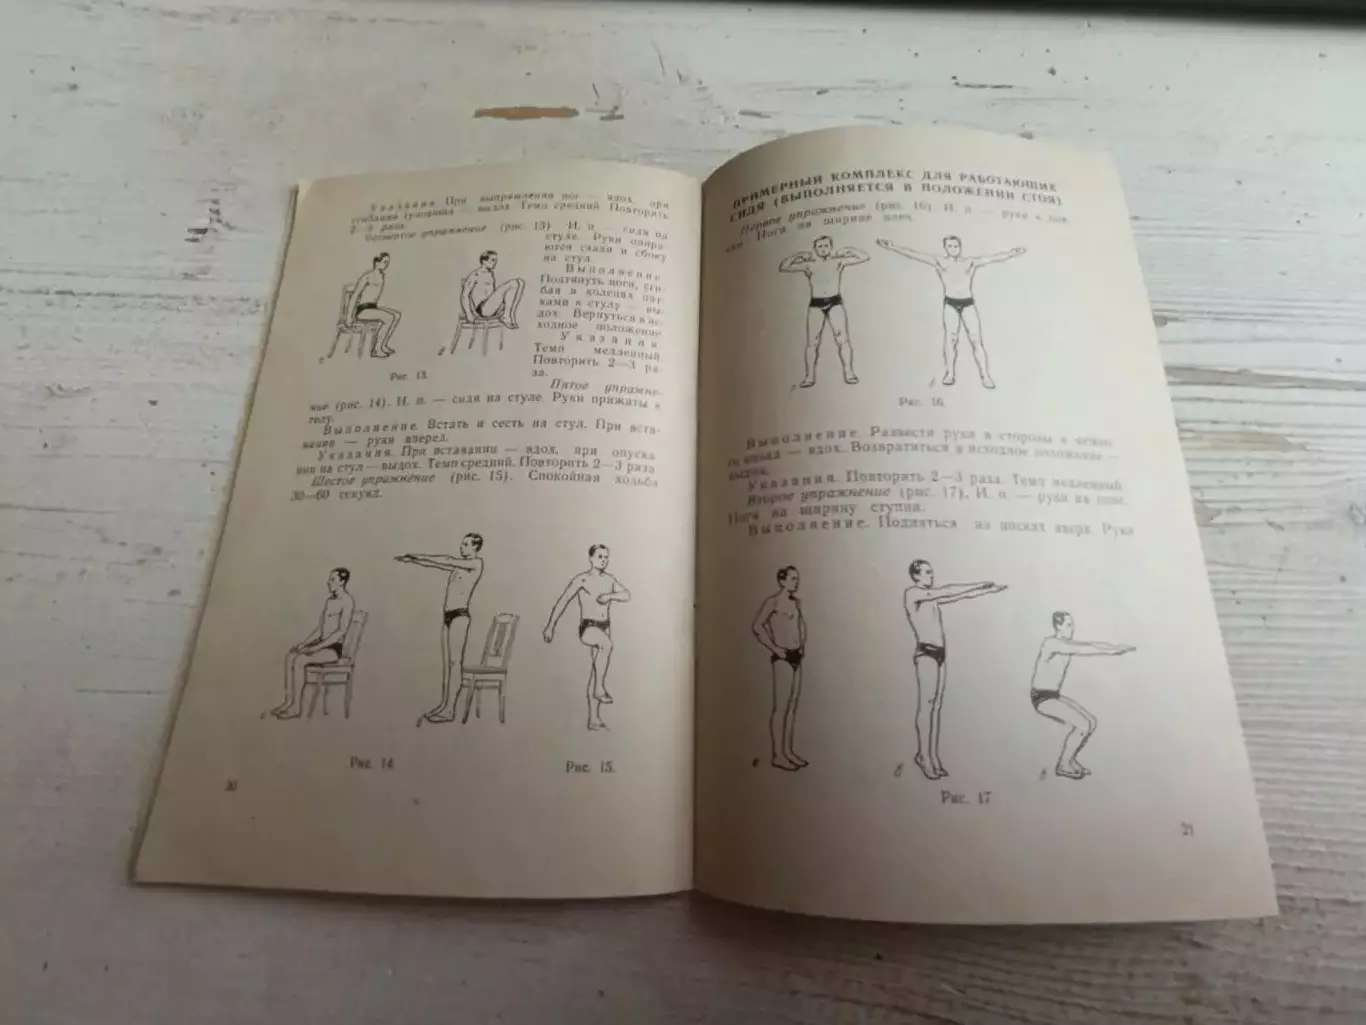 Указания. При выпрямлении ног — вдох, при
сгибании туловища — выдох. Темп средний. Повторить
2—3 раза.
Четвертое упражнение (рис. 13). И. п. — сидя на
стуле. Руки опира-
ются сзади и сбоку
на стул.
Выполнение.
Подтянуть ноги, сги-
бая в коленях пят-
ками к стулу — вы-
дох. Вернуться в ис-
ходное положение
Указания.
Темп медленный.
Повторить 2—3 ра-
за.
Рис. 13.
Пятое упражне-
ние (рис. 14). И. п. — сидя на стуле. Руки прижаты к
телу.
Выполнение. Встать и сесть на стул. При вста-
вании — руки вперед.
Указания. При вставании — вдох, при опуска
нии на стул — выдох. Темп средний. Повторить 2—3 раза
Шестое упражнение (рис. 15). Спокойная ходьба
30—60 секунд.
Рис. 14
Рис. 15.
20
ПРИМЕРНЫЙ КОМПЛЕКС ДЛЯ РАБОТАЮЩИХ
СИДЯ (ВЫПОЛНЯЕТСЯ В ПОЛОЖЕНИИ СТОЯ)
Первое упражнение (рис. 16). И. п. — руки к пле-
чам. Ноги на ширине плеч.
а
б
Рис. 16.
Выполнение. Развести руки в стороны и
назад — вдох. Возвратиться в исходное положение —
выдох.
Указания. Повторить 2—3 раза. Темп медленный.
Второе упражнение (рис. 17). И. п. — руки на пояс.
Ноги на ширину ступни.
Выполнение. Подняться на носках вверх. Руки
а
б
в
Рис. 17
21